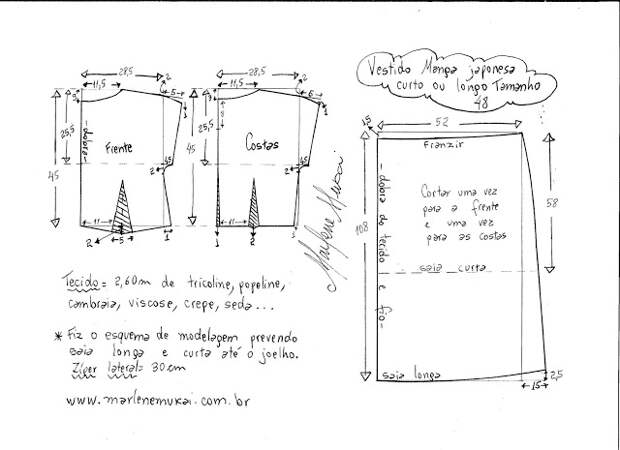 Vestido Manga japonesa
curto ou longo Tamanho
48
28,5
11,5
2
5
3
1
25,5
45
-dobra-
Frente
4,5
2
11
2
5
1
28,5
11,5
2
5
3
1
25,5
45
Costas
4,5
2
11
1
2
Marlene Mukai
1,5
52
Franzir
- dobra do tecido e fio -
108
Cortar uma vez
para a frente
e uma vez
para as costas
58
saia curta
saia longa
15
2,5
Tecido = 2,60m de tricoline, popeline,
cambraia, viscose, crepe, seda...
* Fiz o esquema de modelagem prevendo
saia longa e curta até o joelho.
Zíper lateral= 30 cm
www.marlenemukai.com.br